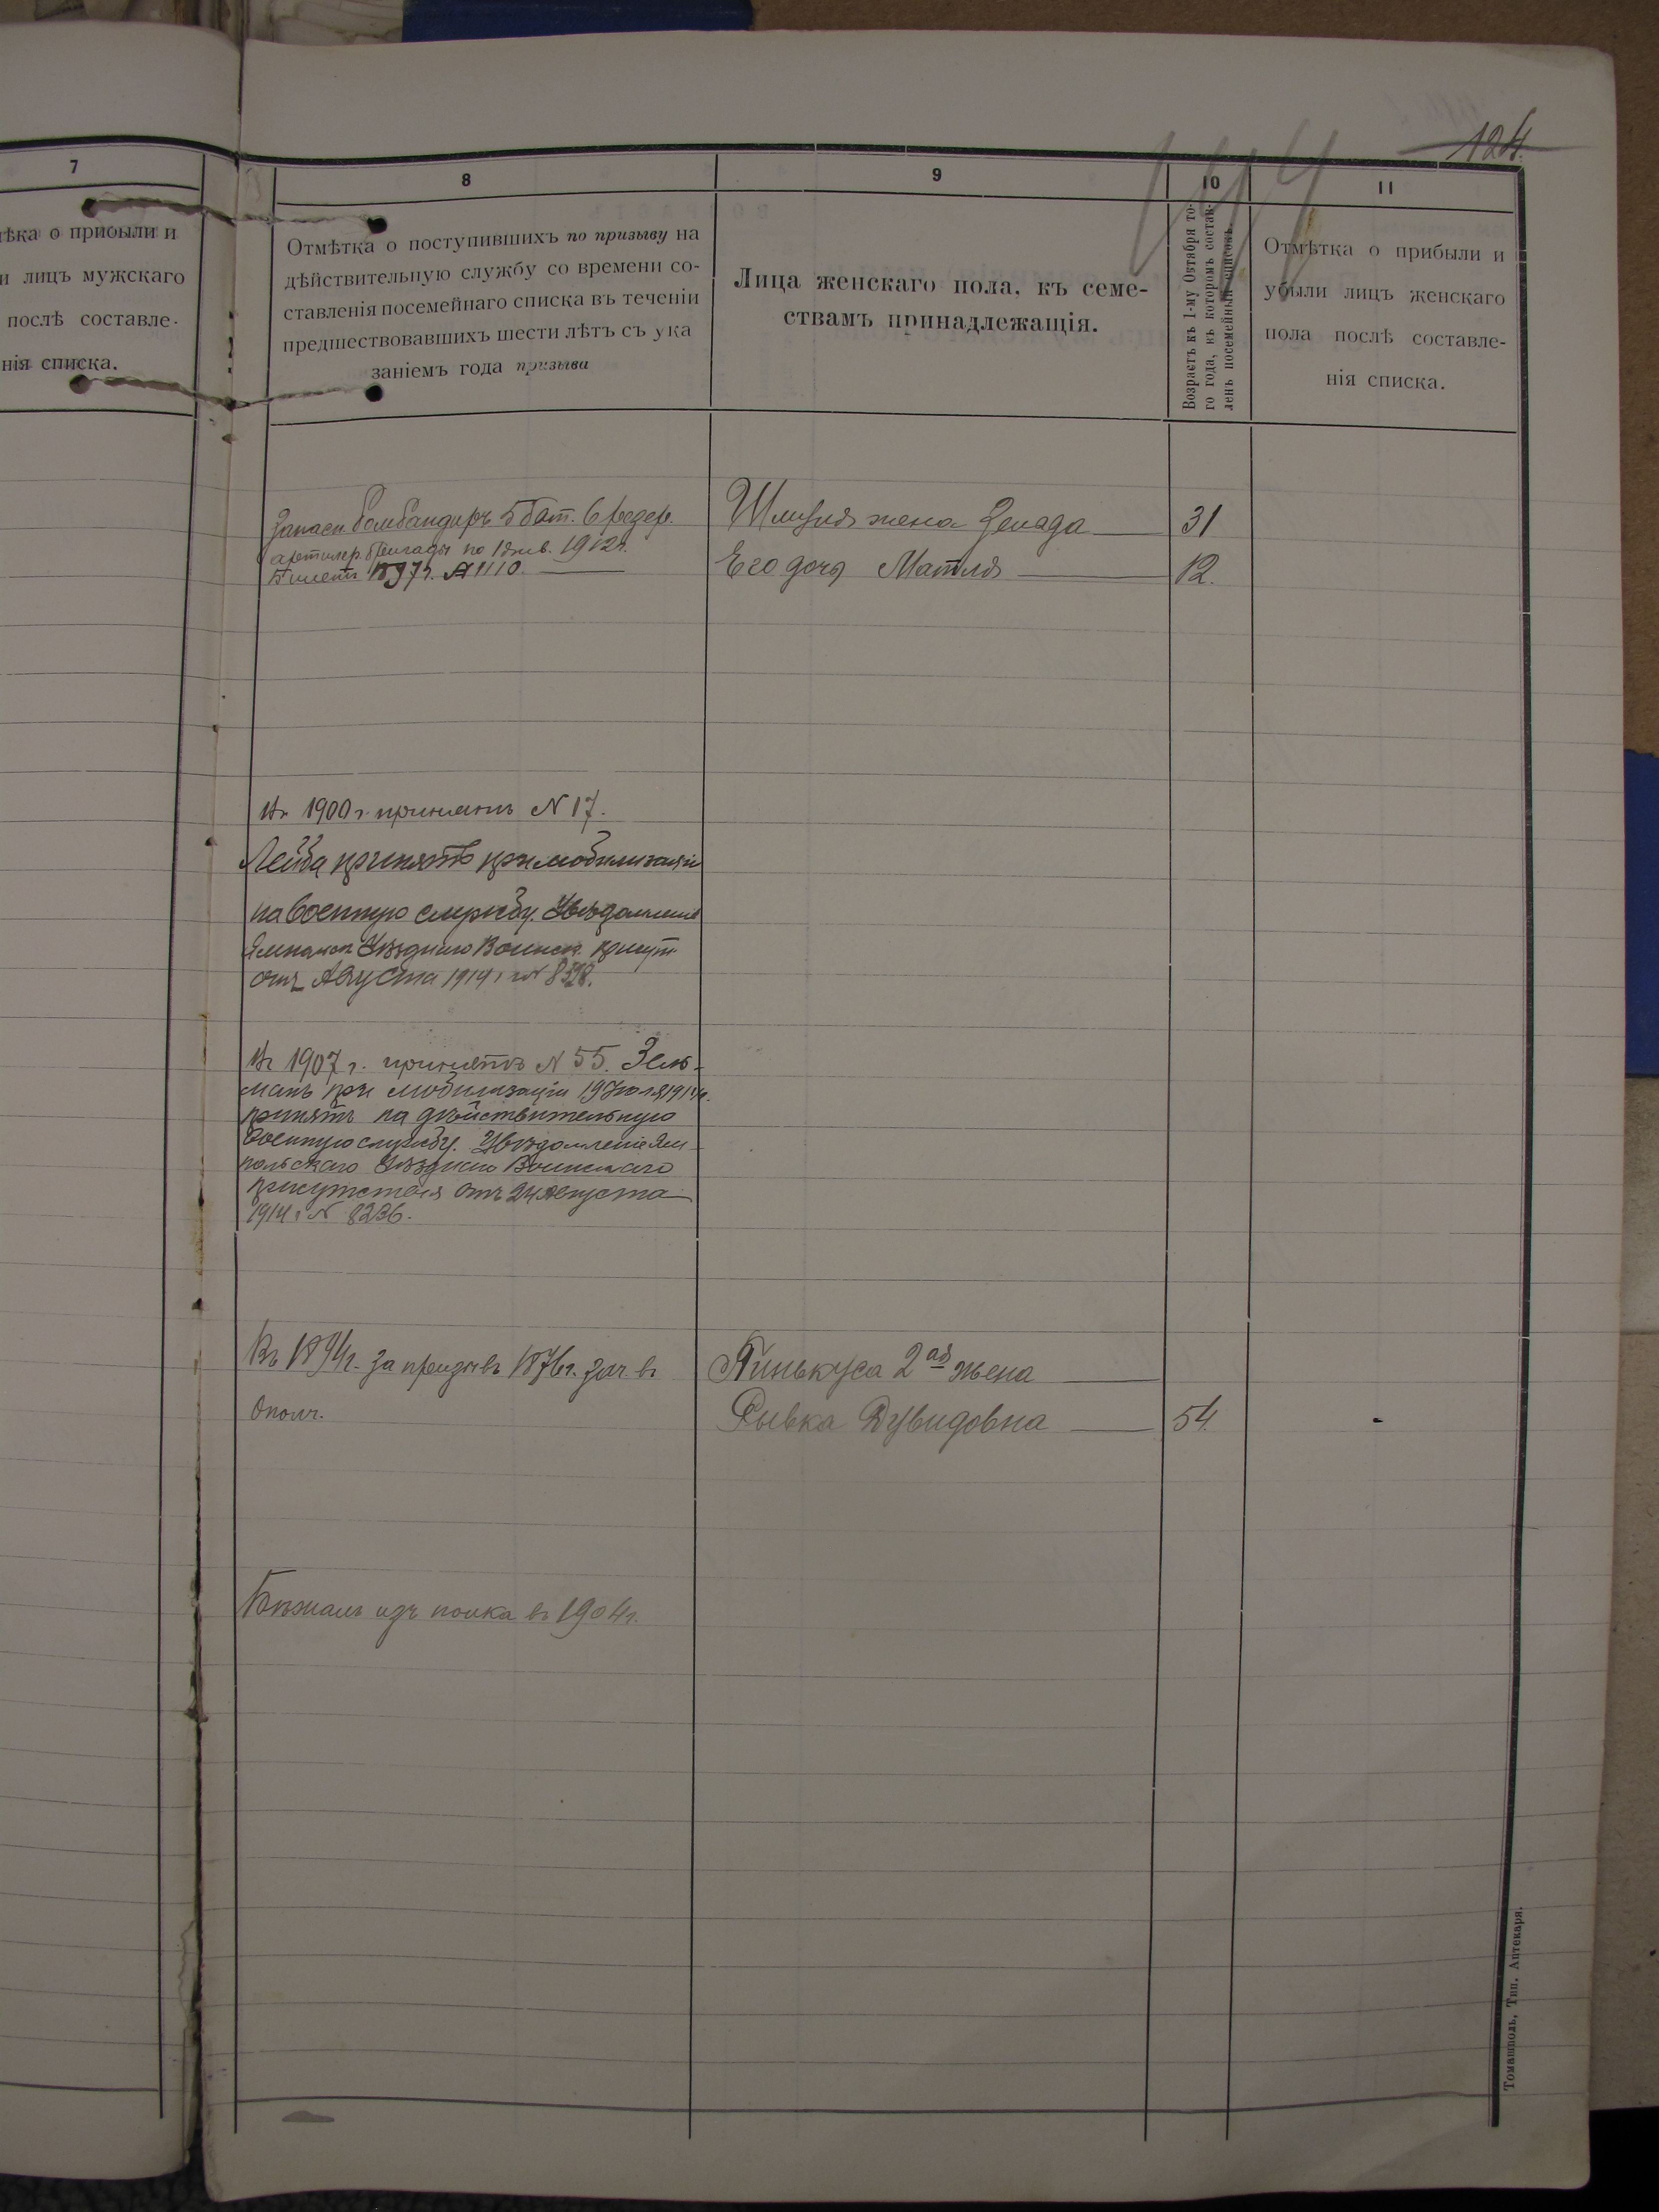 124.
144
7
8
9
10
11
ѣка о прибыли и
и лицъ мужскаго
послѣ составле-
нія списка.
Отмѣтка о поступившихъ по призыву на
дѣйствительную службу со времени со-
ставленія посемейнаго списка въ теченіи
предшествовавшихъ шести лѣтъ съ ука
заніемъ года призыва
Лица женскаго пола, къ семе-
ствамъ принадлежащія.
Возрастъ къ 1-му Октября то-
го года, въ которомъ состав-
ленъ посемейный списокъ.
Отмѣтка о прибыли и
убыли лицъ женскаго
пола послѣ составле-
нія списка.
Запасн. бомбандиръ 5 бат. 6 резер.
артилер. бригады по 1 янв. 1912г.
Билетъ 1897г. №1110.
Шмуля жена Зелада 31
Его дочь Матля 12.
Въ 1900 г. принятъ N 17.
Лейба принятъ при мобилизаціи
на военную службу. Увѣдомленіе
Уѣзднаго Воинск. присут
отъ Августа 1914 г. N
Въ 1907 г. принятъ N 55. Зель-
манъ при мобилизаціи 19 Іюля 1914 г.
принятъ на дѣйствительную
военную службу. Увѣдомленіе Ям-
польскаго Уѣзднаго Воинскаго
присутствія отъ 24 Августа
1914 г. N 8236.
Въ 1894г. за призывъ 1876г. зач. въ
Ополч.
Пинькуса 2ая жена
Рывка Дувидовна 54.
Бѣжалъ изъ полка въ 1904г.
Томашполь, Тип. Аптекаря.